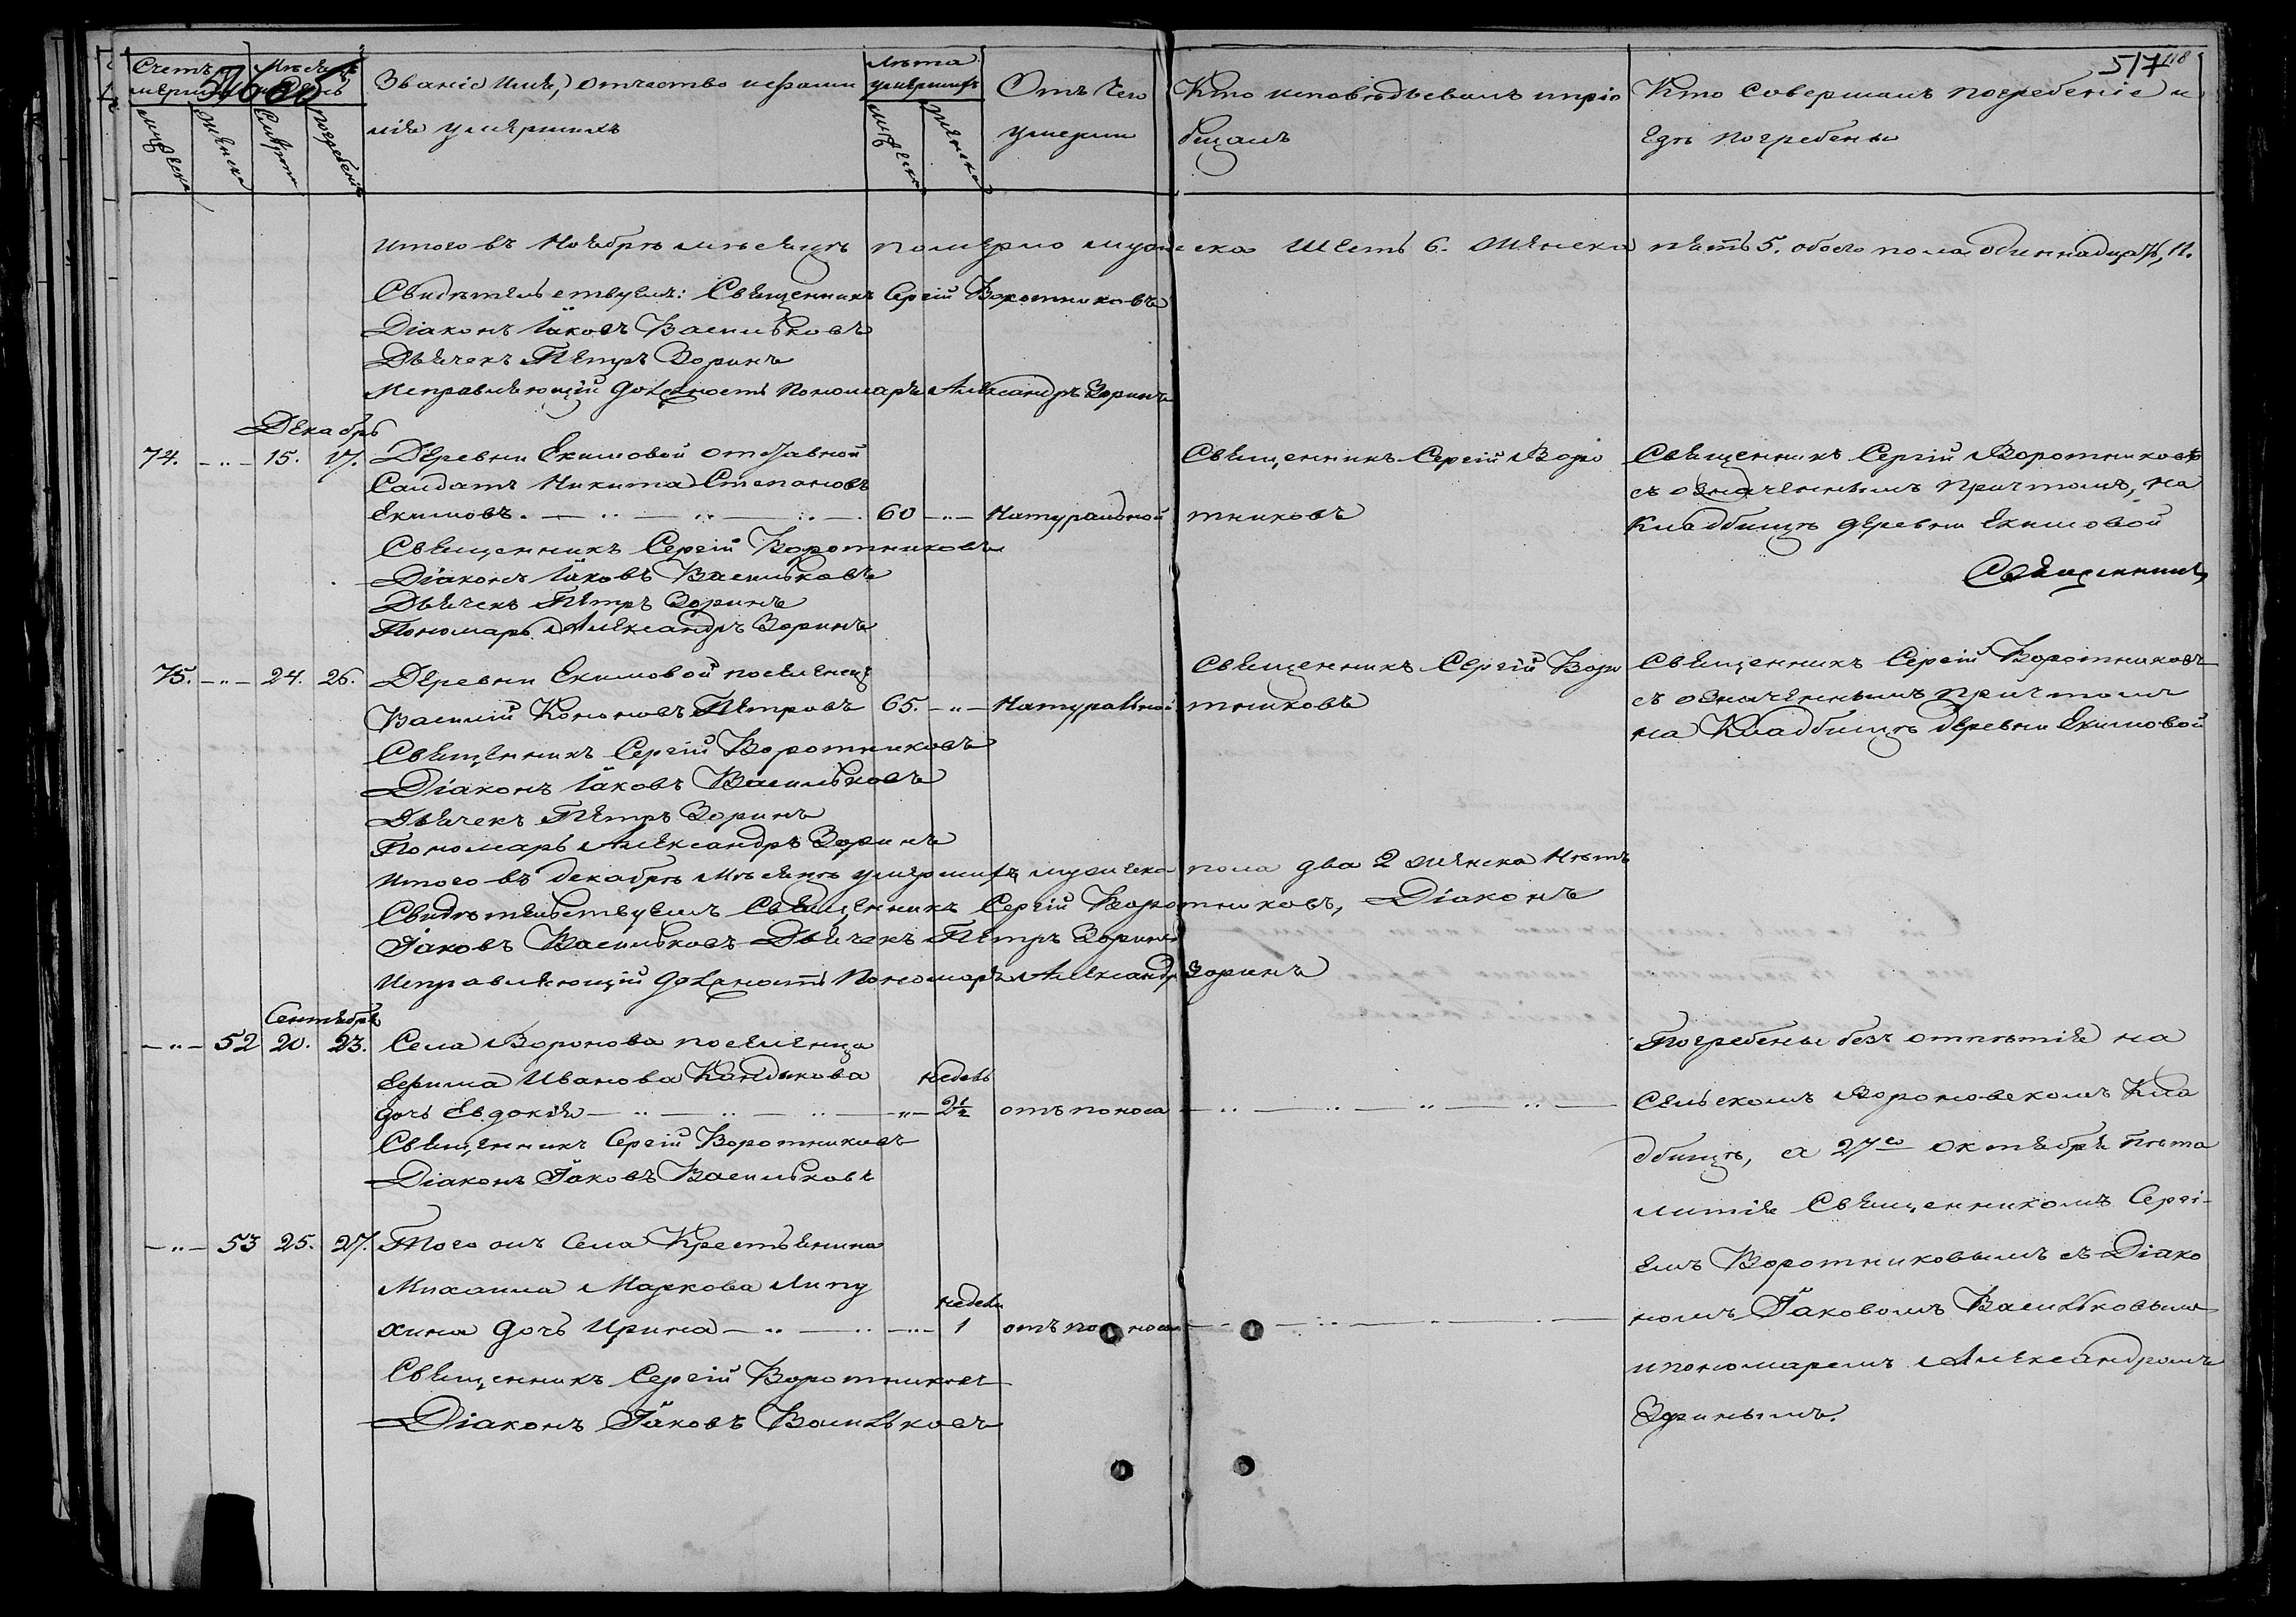 517 118
Счетъ умершихъ
Мѣсяцъ и день
Званіе Имя, отчество и фами
лія умершихъ
лѣта умершихъ
Отъ чего
умерли
Кто исповѣдывалъ и прiо
бщалъ
Кто Совершалъ погребеніе и
гдѣ погребены
мужеска
женска
Смерти
погребенія
мужеска
женска
Итого въ Ноябрѣ мѣсяцѣ померло мужеска шесть 6. женска пять 5. обоего пола одиннадцать, 11.
Свидѣтельствуемъ: Священникъ Сергій Воротниковъ
Діаконъ Іаковъ Васильковъ
Дьячекъ Петръ Зоринъ
Исправляющій должность Пономаря Александръ Зоринъ
Декабрь
74. — „ — 15. 17. Деревни Екимовой отставной
Салдатъ Никита Степановъ
Екимовъ. — 60 — „ — Натуральной
Священникъ Сергій Воро
тниковъ
Священникъ Сергій Воротниковъ
съ означеннымъ причтомъ, на
Кладбищѣ деревни Екимовой
Священникъ
Священникъ Сергій Воротниковъ
Діаконъ Іаковъ Васильковъ
Дьячекъ Петръ Зоринъ
Пономарь Александръ Зоринъ
75. — „ — 24. 26. Деревни Екимовой поселенецъ
Василій Кононовъ Петровъ 65. — „ — Натуральной
Священникъ Сергій Воро
тниковъ
Священникъ Сергій Воротниковъ
съ означеннымъ причтомъ
на Кладбищѣ деревни Екимовой
Священникъ Сергій Воротниковъ
Діаконъ Іаковъ Васильковъ
Дьячекъ Петръ Зоринъ
Пономарь Александръ Зоринъ
Итого въ декабрѣ мѣсяцѣ умершихъ мужеска пола два 2 женска Нѣтъ
Свидѣтельствуемъ Священникъ Сергій Воротниковъ, Діаконъ
Іаковъ Васильковъ Дьячекъ Петръ Зоринъ
Исправляющій должность Пономаря Александръ Зоринъ
Сентябрь
— „ — 52 20. 23. Села Воронова поселенца
Ефима Иванова Кандыкова недель
дочь Евдокія — „ — 2½ отъ поноса
Священникъ Сергій Воротниковъ
Діаконъ Іаковъ Васильковъ
— „ — 53 25. 27. Того жъ Села Крестьянина
Михаила Маркова Липу
хина дочь Ирина — „ — недели 1 отъ поноса
Священникъ Сергій Воротниковъ
Діаконъ Іаковъ Васильковъ
Погребены безъ отпѣтія на
Сельскомъ Вороновскомъ Кла
дбищѣ, а 27го Октября пѣта
литія Священникомъ Сергі-
емъ Воротниковымъ съ Діако
номъ Іаковомъ Васильковымъ
и пономаремъ Александромъ
Зоринымъ.